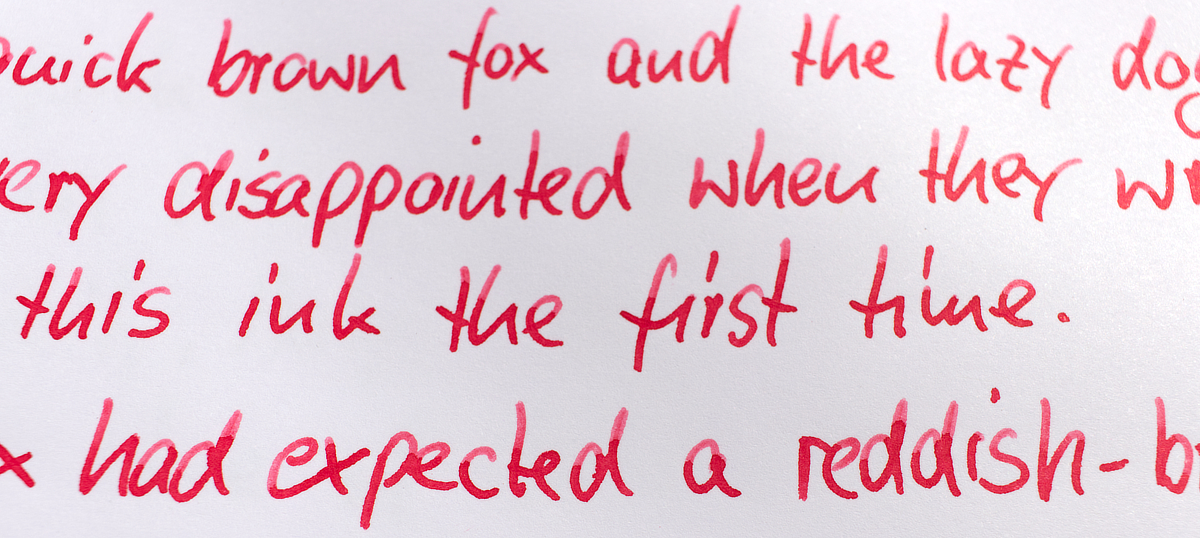 quick brown fox and the lazy dog
very disappointed when they
this ink the first time.
had expected a reddish-